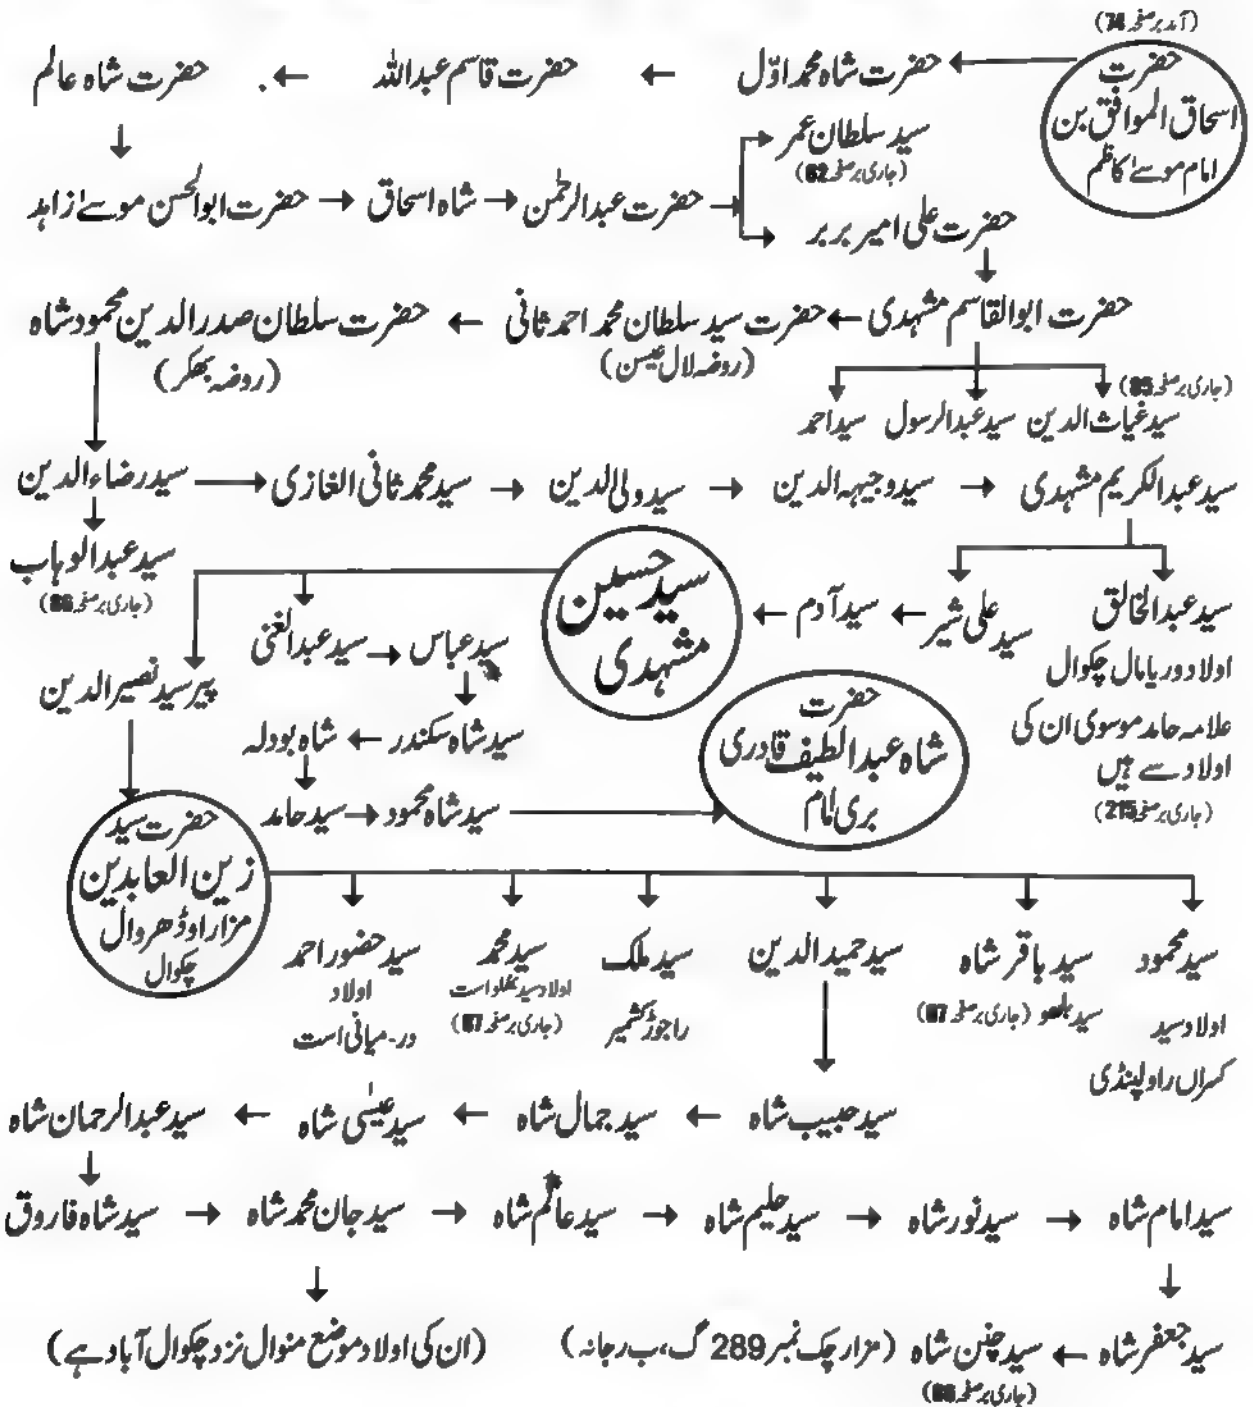 (آمد برصفحہ 74)
حضرت
اسحاق الموافق بن
امام موسےٰ کاظم
حضرت شاہ محمد اوّل ← حضرت قاسم عبداللہ ← حضرت شاہ عالم
سید سلطان عمر
(جاری برصفحہ 62)
حضرت ابوالحسن موسےٰ زاہد → شاہ اسحاق → حضرت عبدالرحمٰن →
حضرت علی امیر بربر
حضرت ابوالقاسم مشہدی ← حضرت سید سلطان محمد احمد ثانی ← حضرت سلطان صدرالدین محمود شاہ
(روضہ لال عیسن)
(روضہ بھکر)
(جاری برصفحہ 85)
سید غیاث الدین سید عبدالرسول سید احمد
سید رضاء الدین → سید محمد ثانی الغازی → سید ولی الدین → سید وجیہہ الدین → سید عبدالکریم مشہدی
سید عبدالوہاب
(جاری برصفحہ 86)
سید عبدالخالق
اولاد دوریامال چکوال
علامہ حامد موسوی ان کی
اولاد سے ہیں
(جاری برصفحہ 215)
سید علی شیر ← سید آدم ←
سید حسین
مشہدی
سید عبدالغنی → سید عباس
پیر سید نصیر الدین
سید شاہ سکندر ← شاہ بودلہ
سید حامد → سید شاہ محمود
حضرت
شاہ عبدالطیف قادری
بری امام
حضرت سید
زین العابدین
مزار اوڈھروال
چکوال
سید محمود
اولاد سید
کسراں راولپنڈی
سید باقر شاہ
سید بلھو (جاری برصفحہ 87)
سید حمید الدین
سید ملک
راجوڑ کشمیر
سید محمد
(جاری برصفحہ 87)
سید حضور احمد
اولاد
در۔میانی است
سید حبیب شاہ ← سید جمال شاہ ← سید عیسٰی شاہ ← سید عبدالرحمان شاہ
سید شاہ فاروق → سید جان محمد شاہ → سید عالم شاہ → سید حلیم شاہ → سید نور شاہ → سید امام شاہ
سید جعفر شاہ ← سید چنن شاہ (مزار چک نمبر 289 گ،ب رجانہ)
(جاری برصفحہ 88)
(ان کی اولاد موضع منوال نزد چکوال آباد ہے)